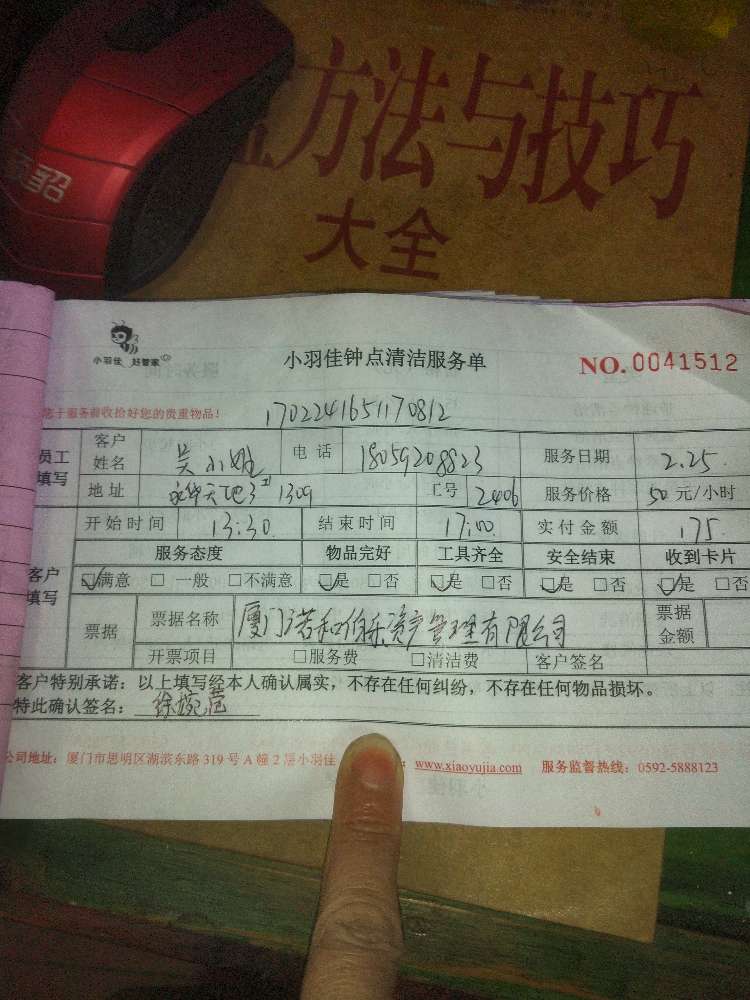 方法与技巧
大全
貂
小羽佳 好管家
小羽佳钟点清洁服务单
NO. 0041512
于服务前收拾好您的贵重物品！
1702241651170812
员工填写 客户姓名 吴小姐 电话 18059208823 服务日期 2.25.
地址 1309 工号 2406 服务价格 50 元/小时
客户填写 开始时间 13:30 结束时间 17:00 实付金额 175
服务态度 物品完好 工具齐全 安全结束 收到卡片
☑满意 □ 一般 □不满意 ☑是 □否 ☑是 □否 ☑是 □否 ☑是 □否
票据 票据名称 厦门诺和伯乐资产管理有限公司 票据金额
开票项目 □服务费 □清洁费 客户签名
客户特别承诺：以上填写经本人确认属实，不存在任何纠纷，不存在任何物品损坏。
特此确认签名：徐婉莹
公司地址：厦门市思明区湖滨东路 319 号 A 幢 2 层小羽佳 www.xiaoyujia.com 服务监督热线：0592-5888123